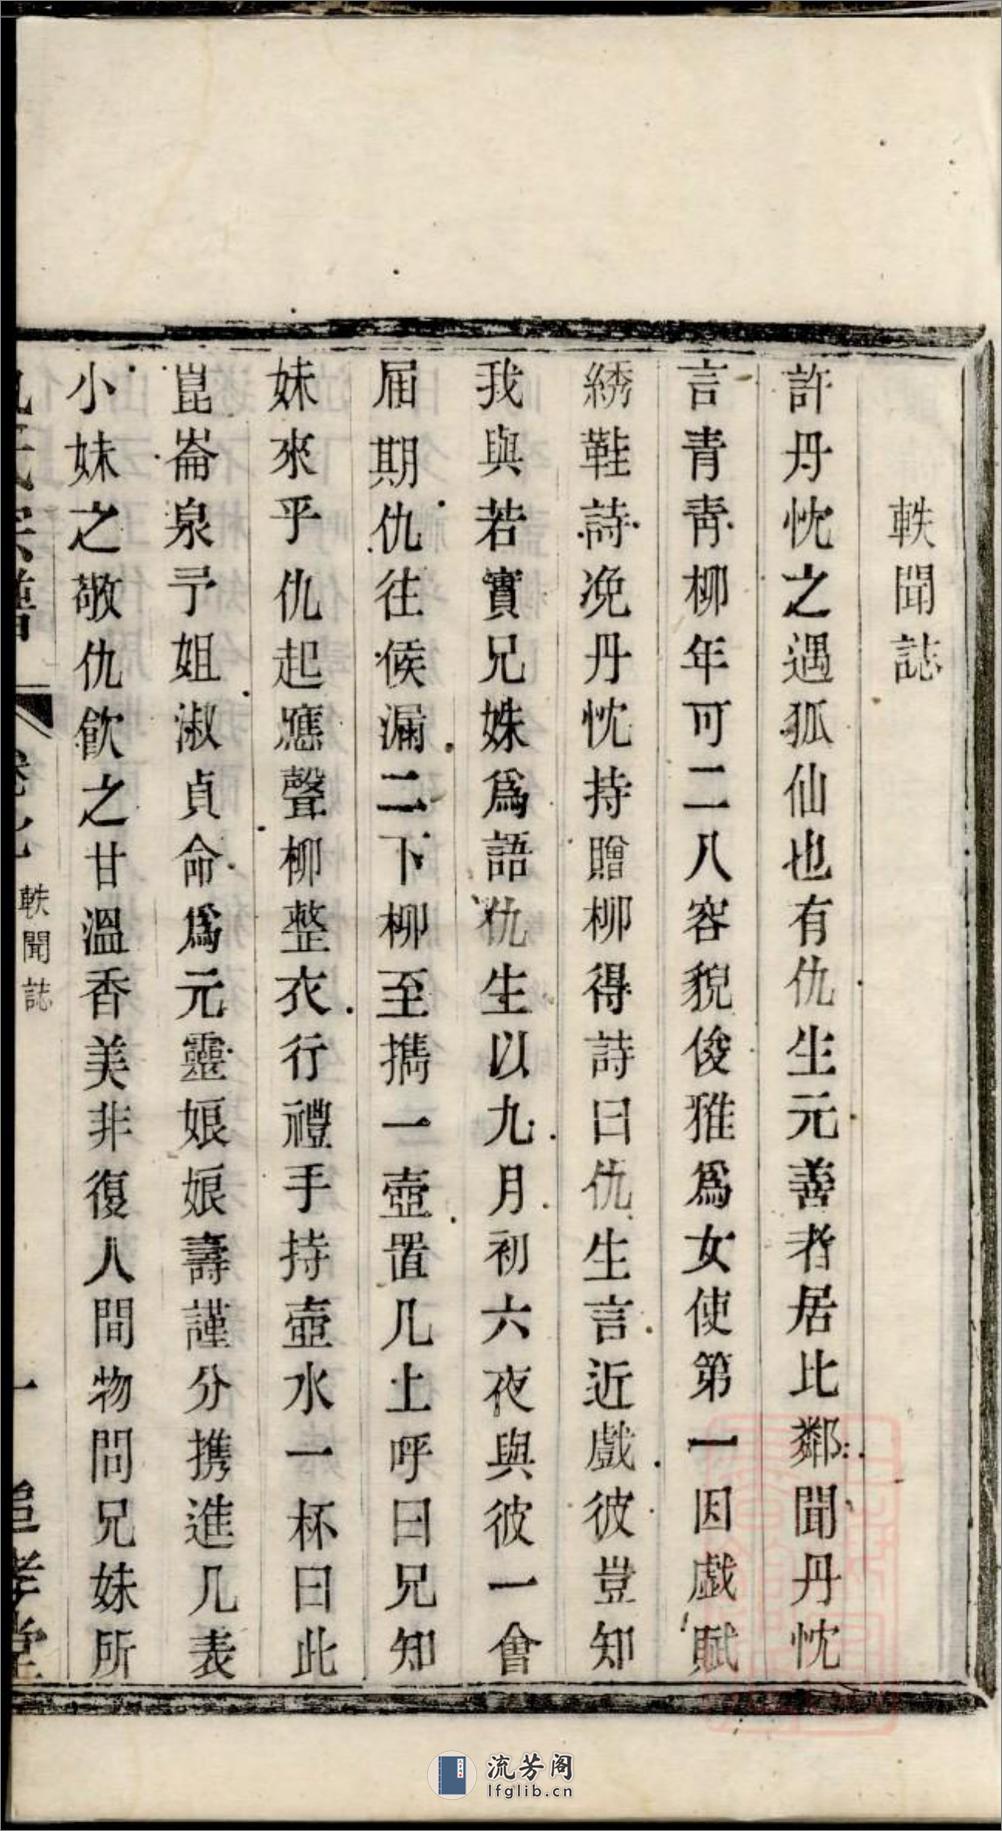 軼聞誌
許丹忱之遇狐仙也有仇生元善者居比鄰聞丹忱
言青青柳年可二八容貌俊雅爲女使第一因戲賦
綉鞋詩浼丹忱持贈柳得詩曰仇生言近戲彼豈知
我與若實兄姝爲語仇生以九月初六夜與彼一會
屆期仇往候漏二下柳至攜一壺置几上呼曰兄知
妹來乎仇起應聲柳整衣行禮手持壺水一杯曰此
崑崙泉予姐淑貞命爲元靈娘娘壽謹分携進几表
小妹之敬仇飲之甘溫香美非復人間物問兄妹所
氏宗譜
軼聞誌
一
追孝堂
流芳阁
lfglib.cn